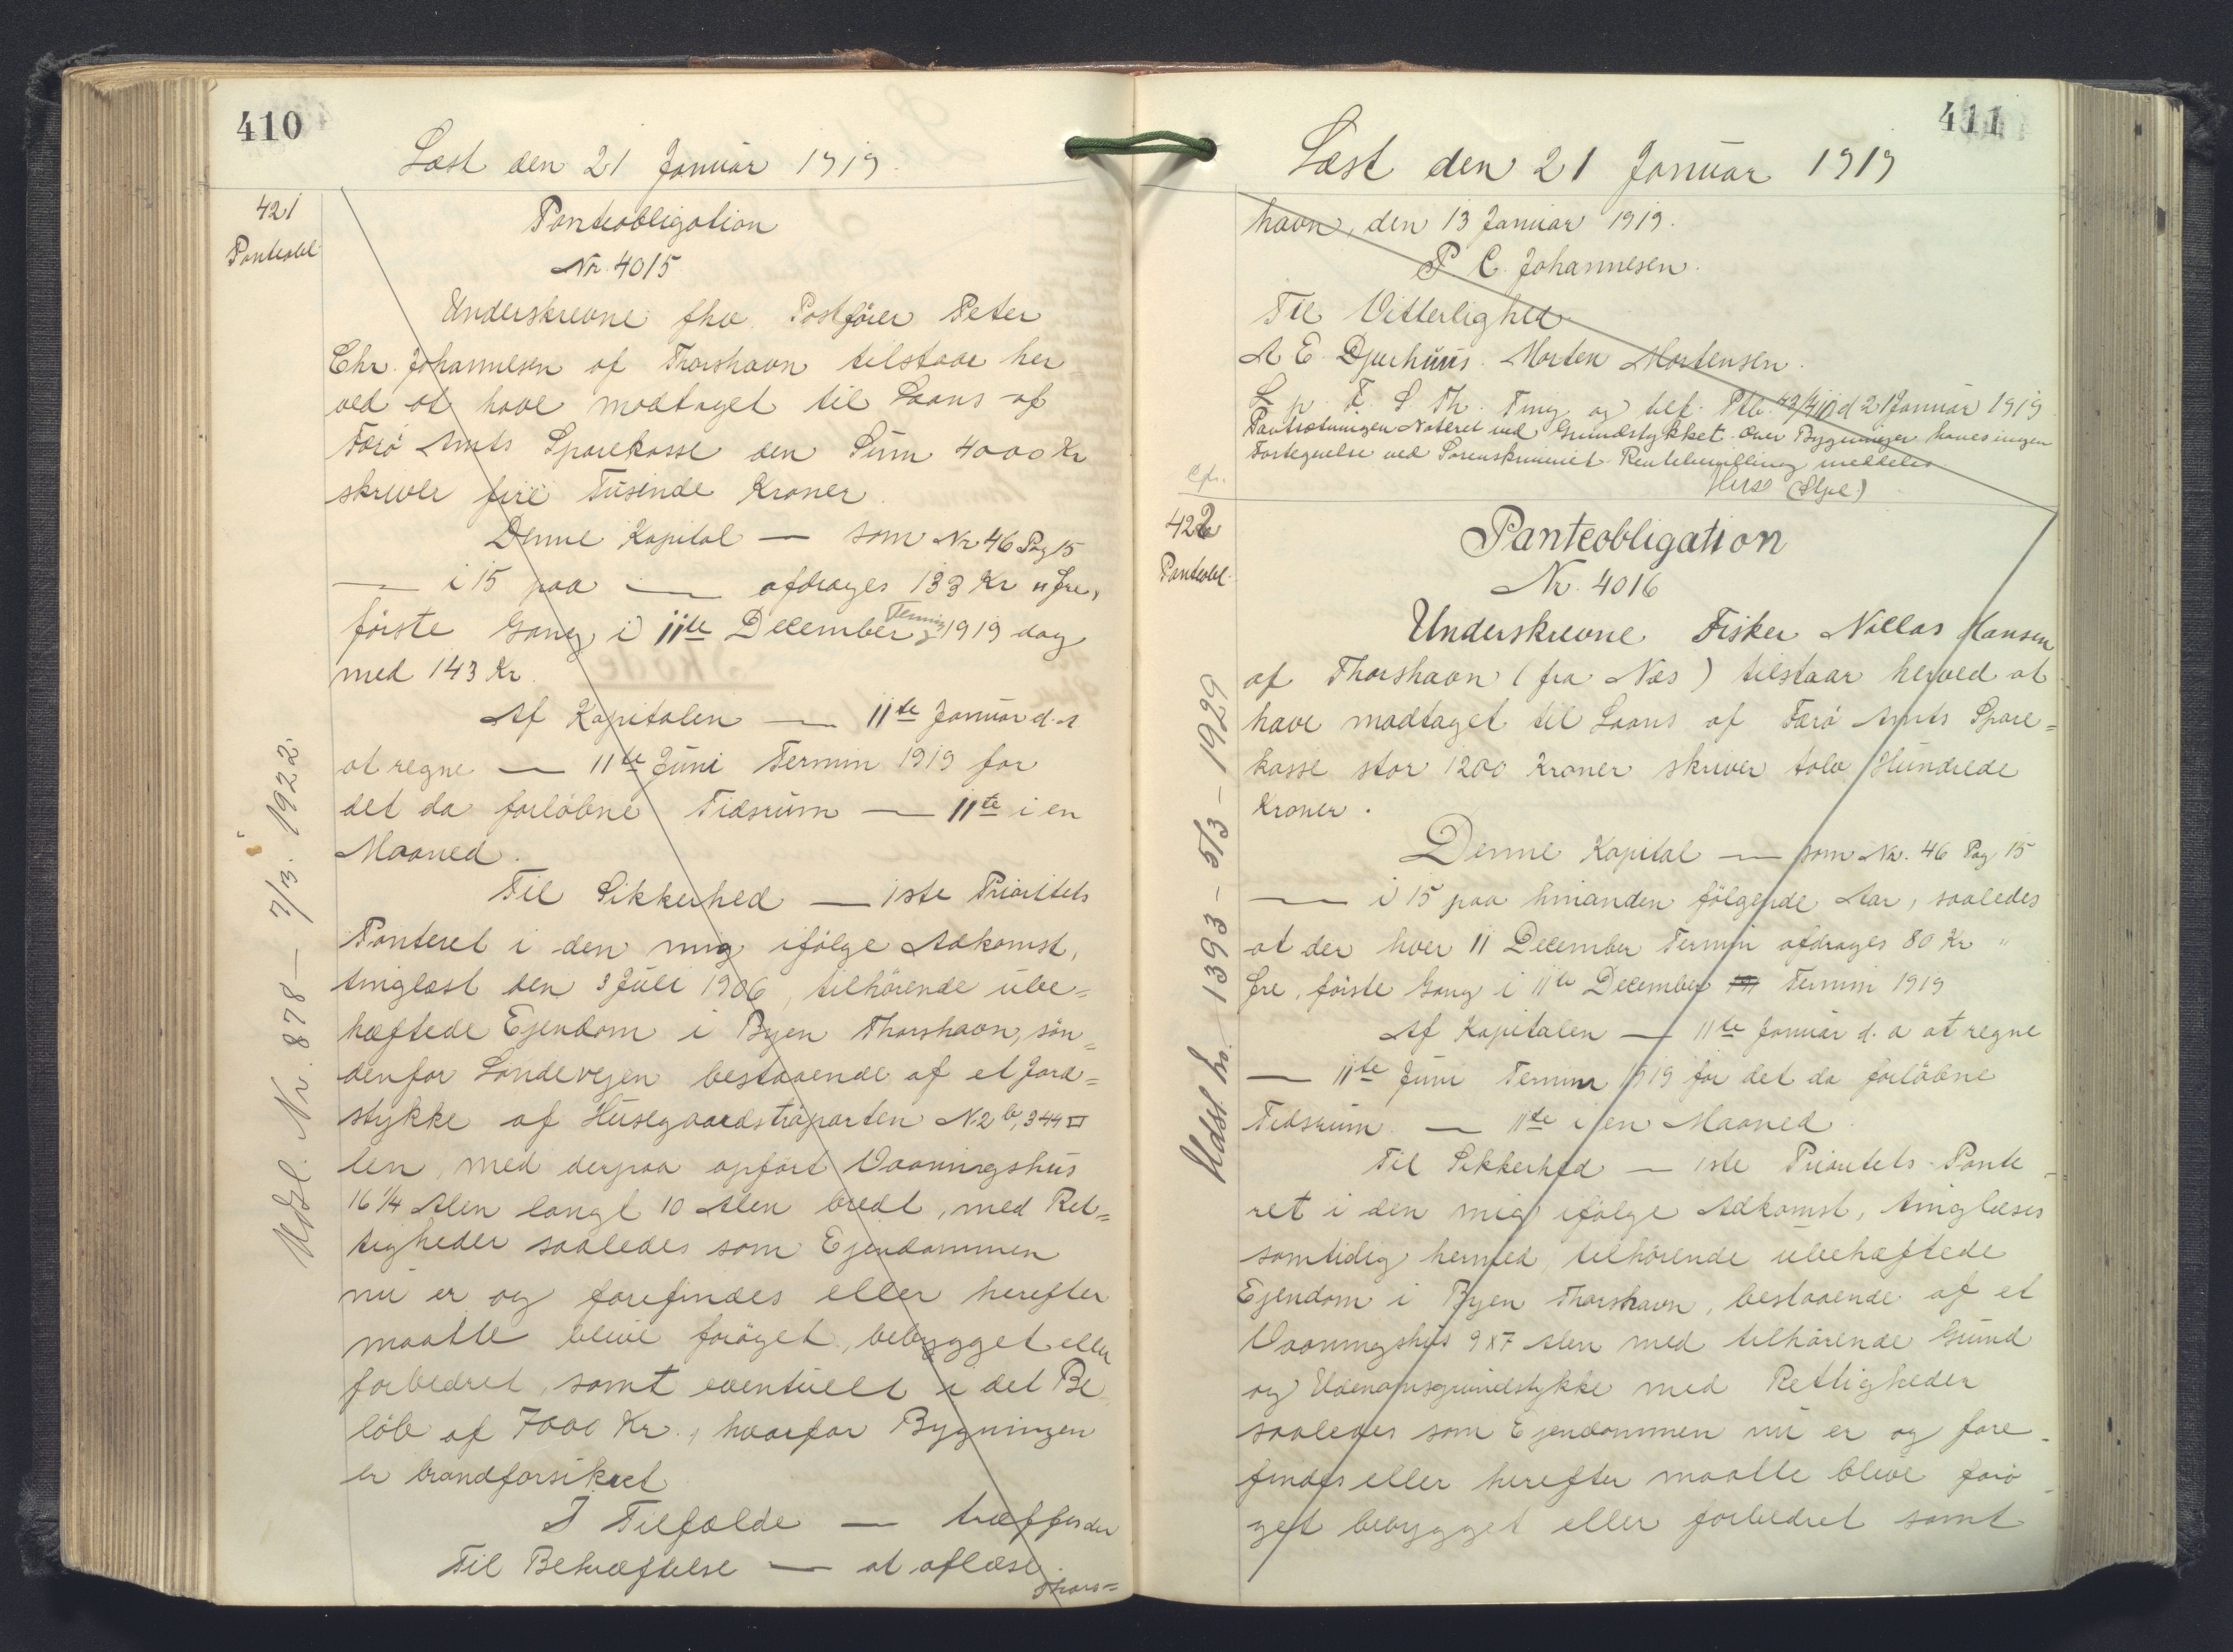 410
Læst den 21 Januar 1919.
421
Panteobl.
Panteobligation
Nr. 4015
Underskrevne fhv. Postförer Peter
Chr. Johannesen af Thorshavn tilstaar her=
ved at have modtaget til Laans af
Færö Amts Sparekasse den Sum 4000 Kr
skriver fire Tusinde Kroner.
Denne Kapital — som Nr 46 Pag 15
— i 15 paa — afdrages 133 Kr " Øre,
förste Gang i 11te December Termin 1919 dog
med 143 Kr.
Af Kapitalen — 11te Januar d. A
at regne — 11te Juni Termin 1919 for
det da forlöbne Tidsrum — 11te i en
Maaned.
Til Sikkerhed — 1ste Prioritets
Panteret i den mig ifölge Adkomst,
tinglæst den 3 Juli 1906, tilhörende ube=
hæftede Ejendom i Byen Thorshavn, sön=
denfor Landevejen bestaaende af et Jord=
stykke af Husegaardstraparten N. 2 b, 344 □
len, med derpaa opfört Vaaningshus
16 1/4 Alen langt 10 Alen bredt, med Ret=
tigheder saaledes som Ejendommen
nu er og forefindes eller herefter
maatte blive foröget, bebygget eller
forbedret, samt eventuelt i det Be
löb af 7000 Kr., hvorfor Bygningen
er brandforsikret
I Tilfælde — træffes der
Til Bekræftelse — at aflæse.
Thors=
Udsl. Nr. 878 — 7/3. 1922.
411
Læst den 21 Januar 1919
havn, den 13 Januar 1919.
P C. Johannesen.
Til Vitterlighed
A E. Djurhuus. Morten Mortensen.
L. p. F. S Th. Ting og bef. Ptb. 42/410 d 21 Januar 1919
Pantsætningen Noteret ved Grundstykket. Over Bygninger haves ingen
Fortegnelse ved Sorenskriveriet. Rentebevilling meddeles
(Stpl.)
Cfr.
422
Panteobl.
Panteobligation
Nr. 4016
Underskrevne Fisker Niclas Hansen
af Thorshavn (fra Næs) tilstaar herved at
have modtaget til Laans af Færö Amts Spare=
kasse stor 1200 Kroner skriver tolv Hundrede
Kroner.
Denne Kapital — som Nr. 46 Pag 15
— i 15 paa hinanden fölgende Aar, saaledes
at der hver 11 December Termin afdrages 80 Kr "
Øre, förste Gang i 11te December Termin 1919
Af Kapitalen — 11te Januar d. a at regne
— 11te Juni Termin 1919 for det da forlöbne
Tidsrum. — 11te i en Maaned.
Til Sikkerhed — 1ste Prioritets-Pante
ret i den mig ifölge Adkomst, tinglæses
samtidig hermed, tilhörende ubehæftede
Ejendom i Byen Thorshavn, bestaaende af et
Vaaningshus 9x7 Alen med tilhörende Grund
og Udenomsgrundstykke med Rettigheder
saaledes som Ejendommen nu er og fore=
findes eller herefter maatte blive forö=
get bebygget eller forbedret samt
Udsl. hr. 1393 - 5/3 - 1929